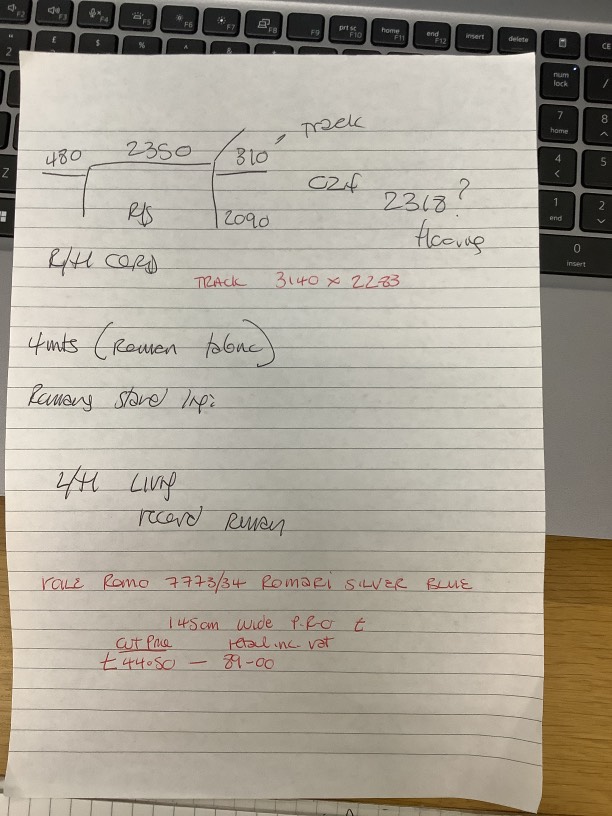 Track
480 2350 310
2318?
R/S 2090
R/H CORD
TRACK 3140 x 2283
4mts (Roman fabric)
L/H Living
record Roman
ROLE Romo 7773/34 Romari SILVER BLUE
145cm wide P.RO £
Cut Price retail inc. vat
£44.50 — 89-00
F2
F3
F4
F5
F6
F7
F8
F9
prt sc
F10
home
F11
end
F12
insert
delete
"
2
£
$
%
^
&
CE
num
lock
/
7
home
8
4
<
5
1
end
2
0
insert
Z